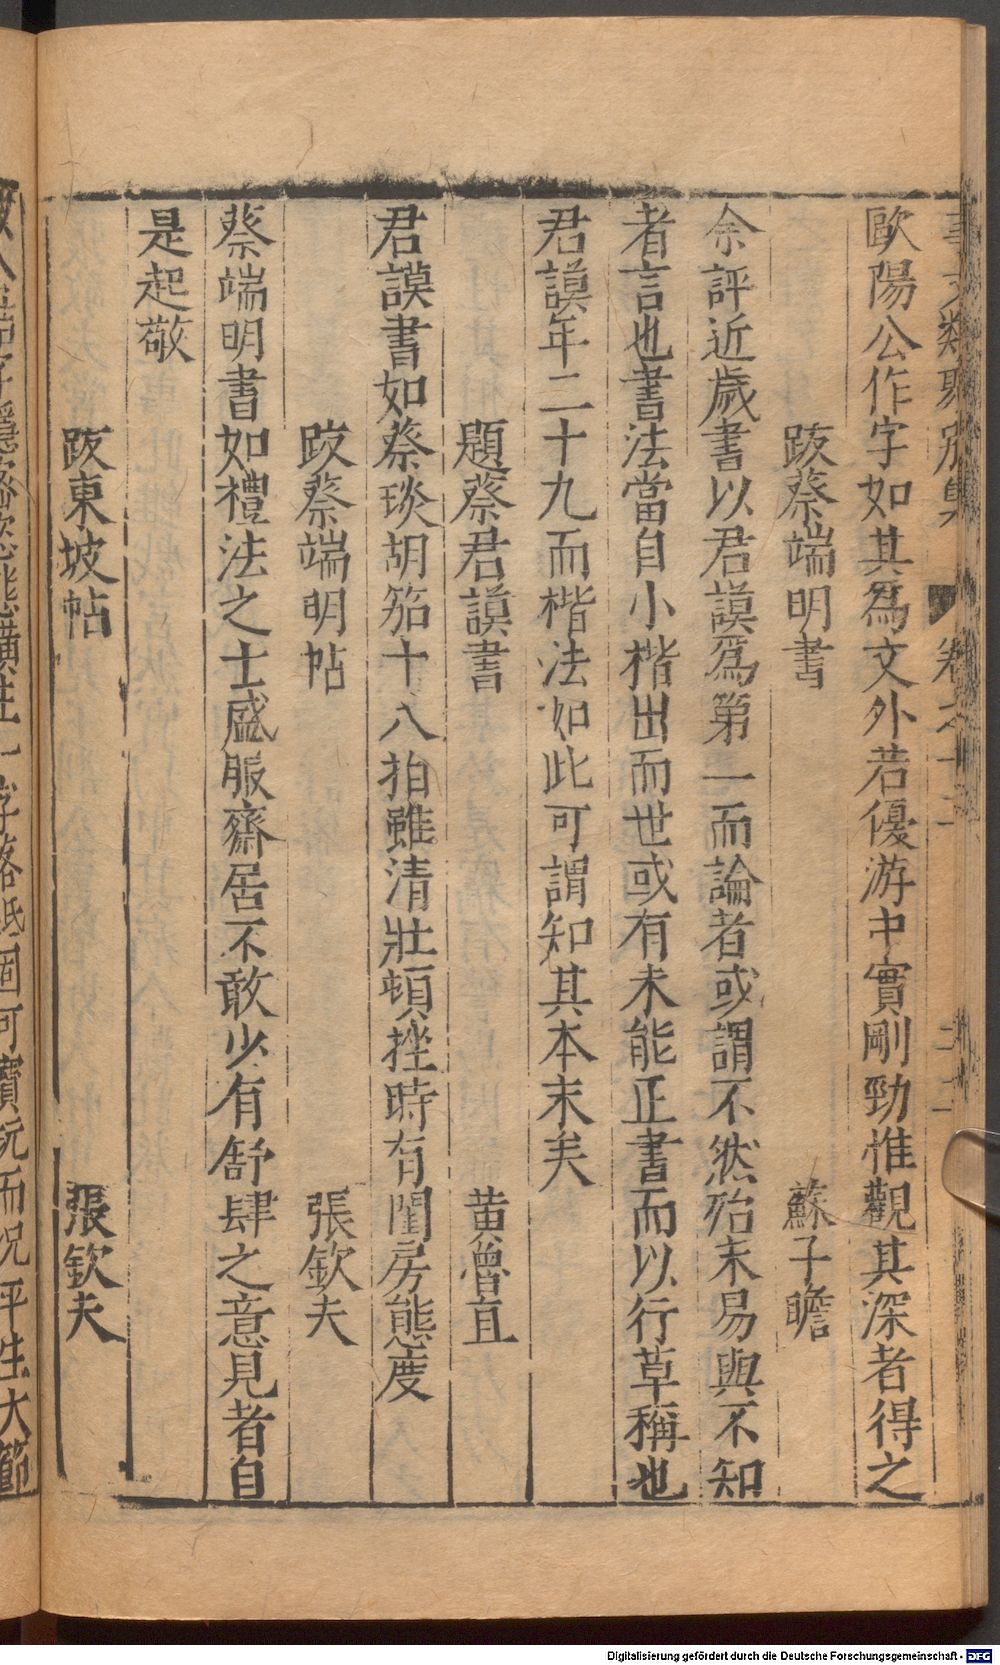 歐陽公作字如其爲文外若優游中實剛勁惟觀其深者得之
跋蔡端明書 蘇子瞻
余評近歲書以君謨爲第一而論者或謂不然殆未易與不知
者言也書法當自小楷出而世或有未能正書而以行草稱也
君謨年二十九而楷法如此可謂知其本末矣
題蔡君謨書 黄魯直
君謨書如蔡琰胡笳十八拍雖清壯頓挫時有閨房態度
跋蔡端明帖 張欽夫
蔡端明書如禮法之士盛服齋居不敢少有舒肆之意見者自
是起敬
跋東坡帖 張欽夫
落紙固可寶玩而况平生大節
Digitalisierung gefördert durch die Deutsche Forschungsgemeinschaft - DFG